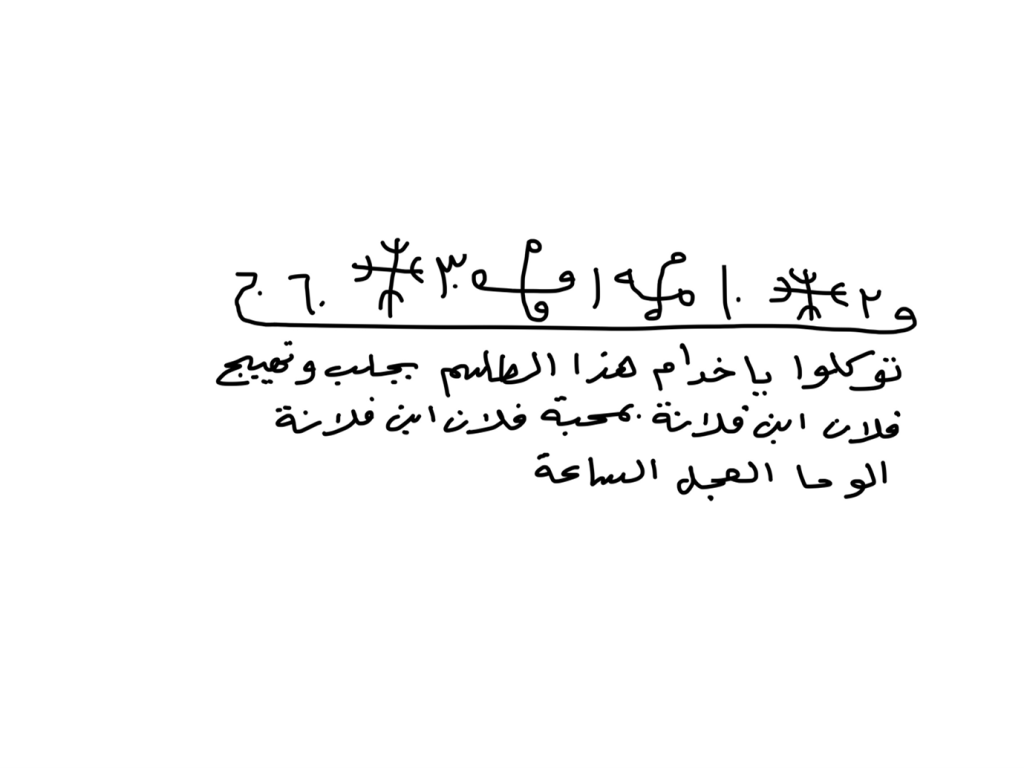 و ٢ ١٠ ١ ٣ ٦٠ ج
توكلوا ياخدام هذا الطلسم بجلب وتهييج
فلان ابن فلانة بمحبة فلان ابن فلانة
الوحا العجل الساعة